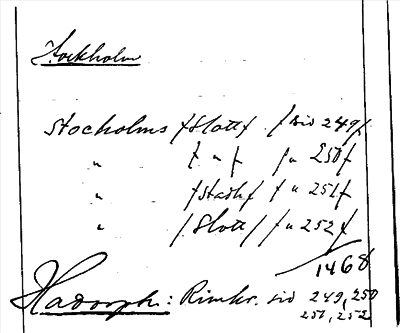 Stockholm
Stocholms /Slott/ /sid 249/
" / " / /" 250/
" /Stadh/ /" 251/
" /Slott/ /" 252/
1468
Hadorph: Rimkr. sid 249, 250
251, 252